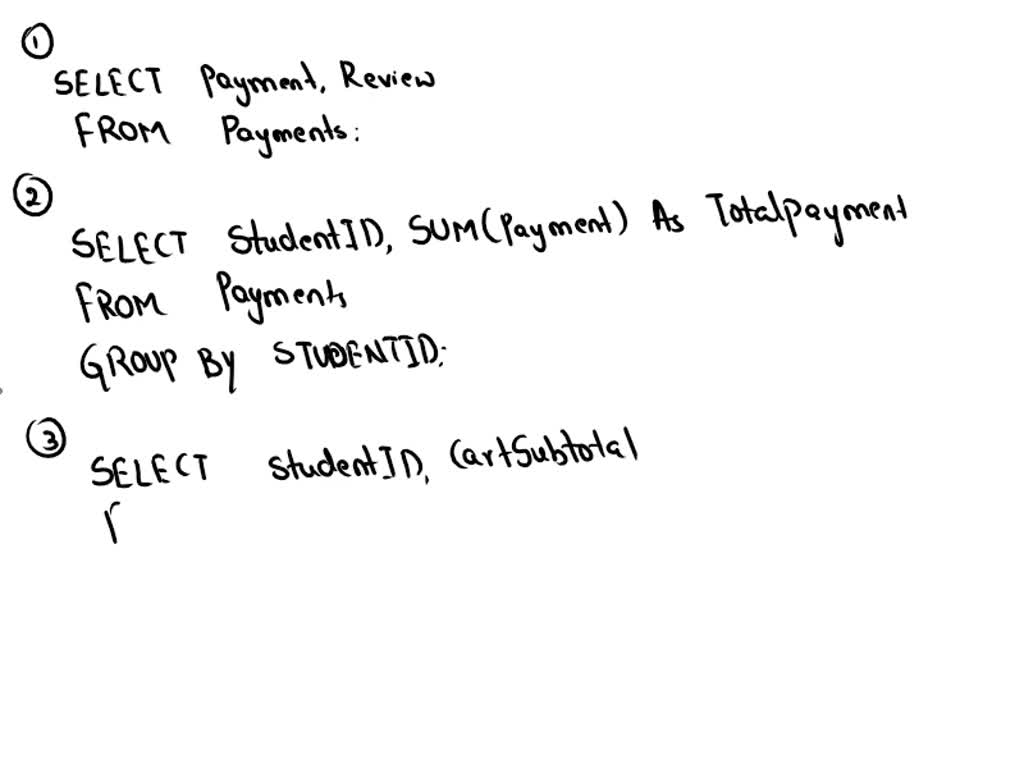 ①
SELECT Payment, Review
FROM Payments;
②
SELECT StudentID, SUM(Payment) As Totalpayment
FROM Payments
GROUP By STUDENTID;
③
SELECT studentID, CartSubtotal
F